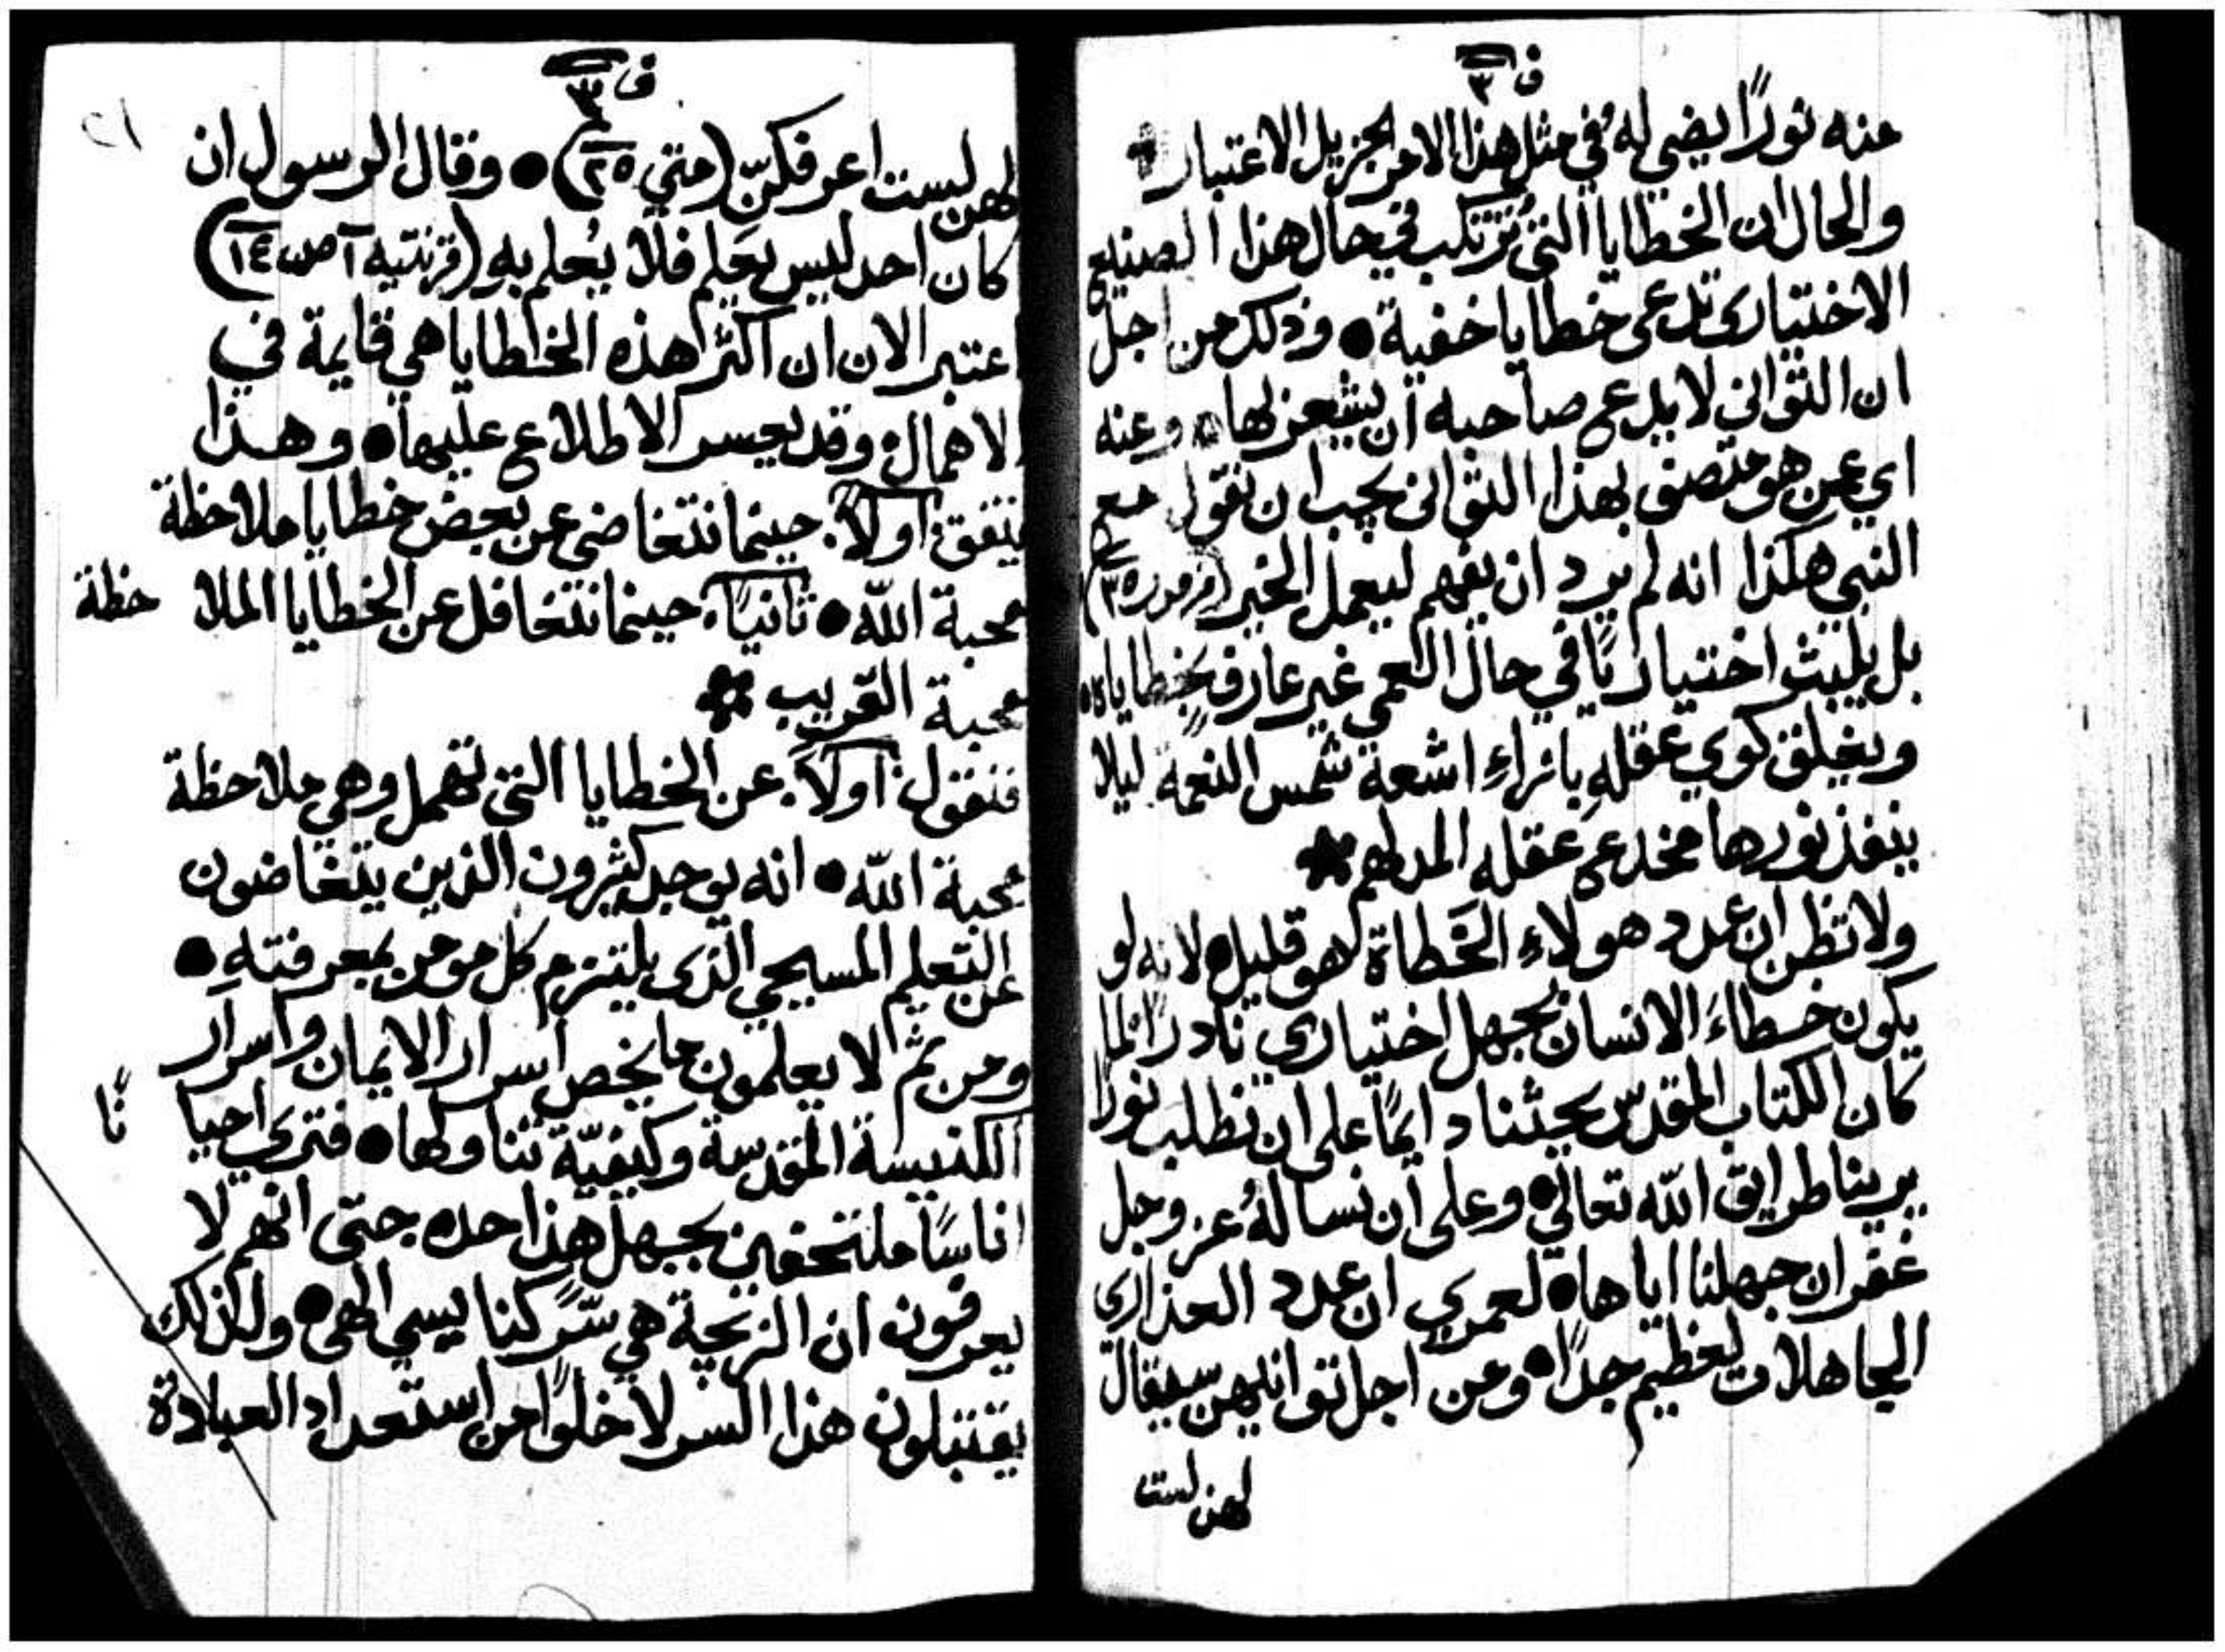 ف ٣
منه نورًا يضي له في مثل هذا الامر الجزيل الاعتبار
والحال ان الخطايا التي تُرتكب في حال هذا الصنيع
الاختيارى تدعى خطايا خفية ● وذلك من اجل
ان التوانى لا يدع صاحبه ان يشعر بها ● وعنه
اي عمن هو متصف بهذا التوانى يجب ان نقول مع
النبي هكذا انه لم يرد ان يفهم ليعمل الخير (مزمور ٣٥)
بل يلبث اختياريًا في حال العمي غير عارف بخطاياه ●
ويغلق كوي عقلهِ بازاءِ اشعة شمس النعمة ليلا
ينفذ نورها مخدع عقله المدلهم
ولا تظن ان عدد هولاءِ الخَطاة لهو قليل ● لانه لو
يكون خطاءَ الانسان بجهل اختياري نادرًا لما
كان الكتاب المقدّس يحثنا دايمًا على ان نطلب نورًا
يرينا طرايق اللّه تعالي ● وعلى ان نسالهُ عز وجل
غفران جهلنا اياها ● لعمري ان عدد العذارى
الجاهلات لعظيم جدًا ● ومن اجل توانيهن سيقال
لهن لست
ف ٣
٢١
لهن لست اعرفكنّ (متي ٢٥) ● وقال الرسول ان
كان احد ليس يَعلم فلا يُعلم به (قرنتيه آ ص ١٤)
اعتبر الان ان اكثر هذه الخطايا هي قايمة في
الاهمال وقد يعسر الاطلاع عليها ● وهذا
يتفق اولاً. حينما نتغاضى عن بعض خطايا ملاحظة
محبة اللّه ● ثانيًا. حينما نتغافل عن الخطايا الملا حظة
محبة القريب
فنقول اولاً. عن الخطايا التي تهمل وهي ملاحظة
محبة اللّه ● انه يوجد كثيرون الذين يتغاضون
عن التعليم المسيحي الذى يلتزم كل مومن بمعرفتهِ ●
ومن ثم لا يعلمون ما يخص اسرار الايمان واسرار
الكنيسة المقدسة وكيفيّة تناولها ● فترى احيا نًا
اناسًا ملتحفين بجهل هذا حده حتى انهم لا
يعرفون ان الزيجة هي سرّ كنايسي الهى ● ولذلك
يقتبلون هذا السر لا خلوًا من استعداد العبادة